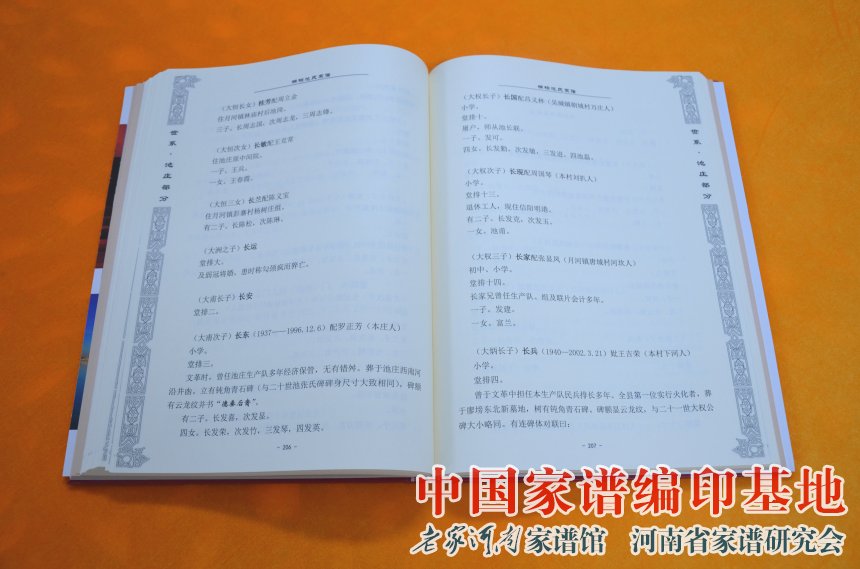 世系·池庄部分
（大恒长女）桂芳配周立金
住月河镇林庙村后池岗。
三子。长周志国，次周志龙，三周志锋。
（大恒次女）长敏配王克常
住池庄原中间院。
一子。王兵。
一女。王春霞。
（大恒三女）长兰配陈义宝
住月河镇彭寨村杨树庄组。
有二子。长陈松，次陈琳。
（大洲之子）长运
堂排大。
及弱冠将婚，患时称勾颈疯而猝亡。
（大甫长子）长安
堂排二。
（大甫次子）长东（1937——1996.12.6）配罗正芳（本庄人）
小学。
堂排三。
文革时，曾任池庄生产队多年经济保管，无有错舛。葬于池庄西南河
沿井凼，立有钝角青石碑（与二十世池张氏碑碑身尺寸大致相同）。碑额
有云龙纹并书“德垂后裔”。
有二子。长发喜，次发显。
四女。长发荣，次发竹，三发琴，四发英。
- 206 -
世系·池庄部分
（大权长子）长国配吕义林（吴城镇胡城村万庄人）
小学。
堂排十。
屠户，师从池长联。
一子。发可。
四女。长发勤，次发敏，三发进，四池磊。
（大权次子）长现配周国琴（本村刘扒人）
小学。
堂排十三。
退休工人，现住信阳明港。
有二子。长发克，次发玉。
一女。池甫。
（大权三子）长家配张显凤（月河镇唐城村河坎人）
初中、小学。
堂排十四。
长家兄曾任生产队、组及联片会计多年。
一子。发逮。
一女。富兰。
（大炳长子）长兵（1940—2002.3.21）妣王吉荣（本村下河人）
小学。
堂排四。
曾于文革中担任本生产队民兵排长多年。全县第一位实行火化者，葬
于廖塝东北新墓地，树有钝角青石碑。碑额显云龙纹，与二十一世大权公
碑大小略同。有连碑体对联曰：
- 207 -
中国家谱编印基地
老家河南家谱馆 河南省家谱研究会